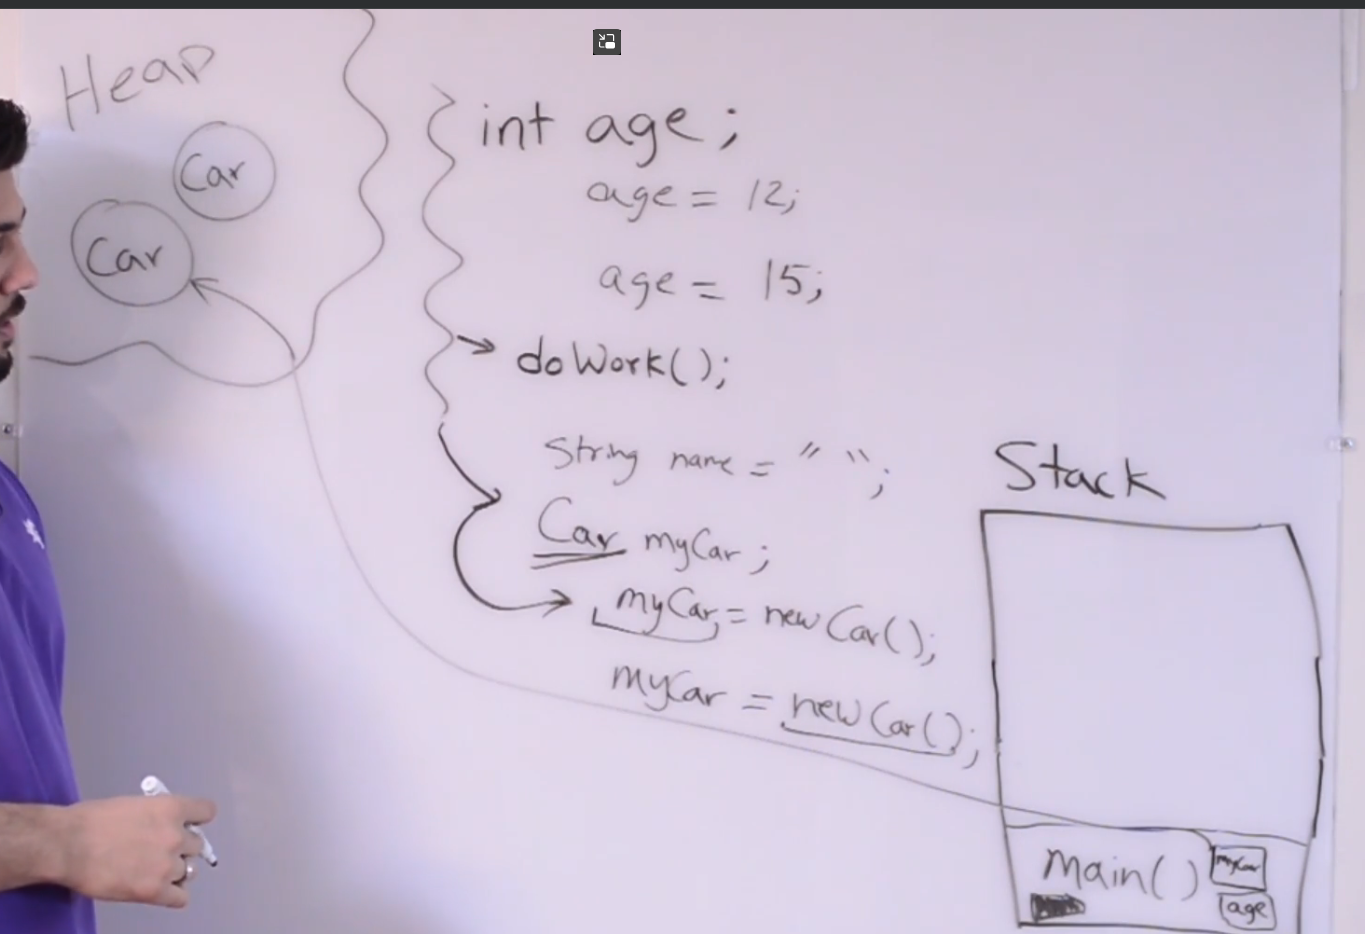 Heap
Car
Car
int age;
age = 12;
age = 15;
doWork();
String name = " ";
Car myCar;
myCar = new Car();
myCar = new Car();
Stack
main()
myCar
age